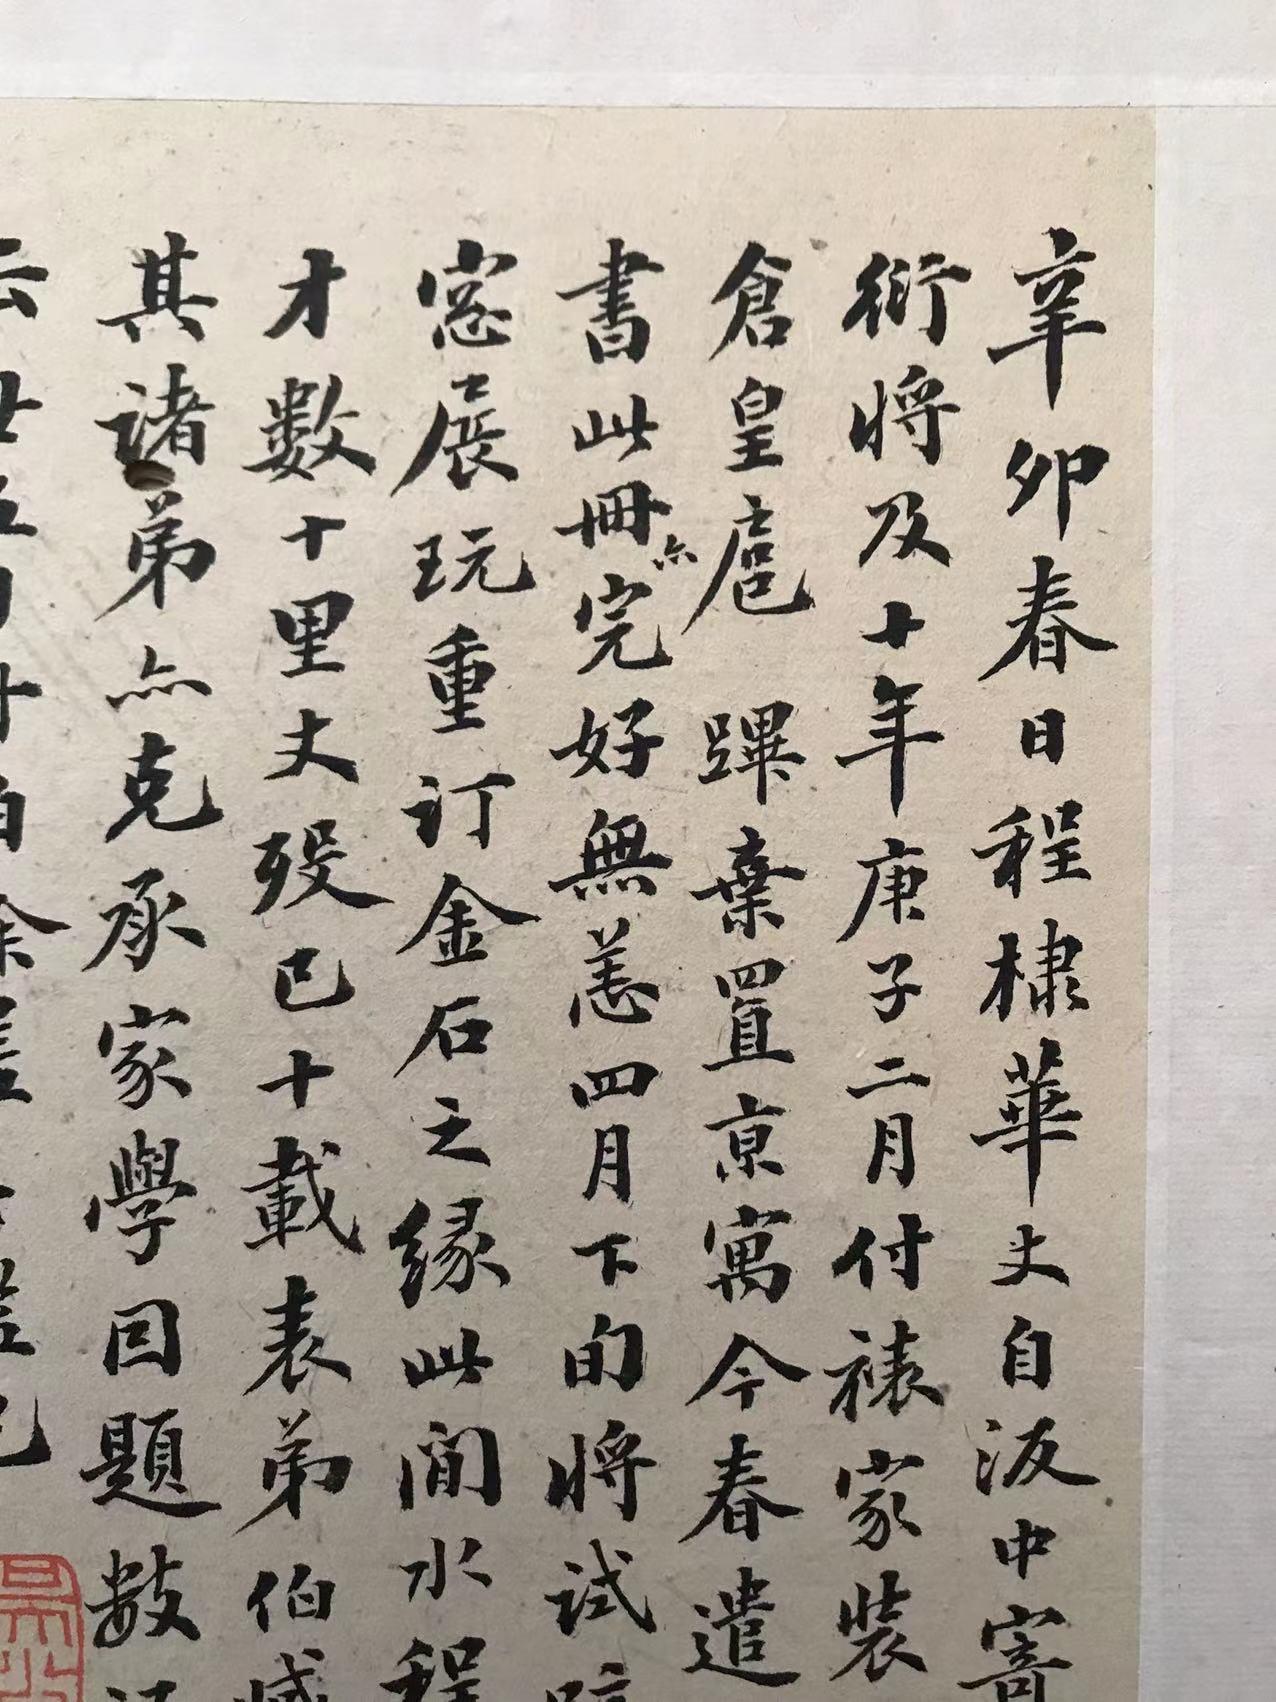 辛卯春日程棣華丈自汳中寄
衍將及十年庚子二月付裱家裝
倉皇扈蹕棄置京寓今春遣
書此冊亦完好無恙四月下旬將試
窓展玩重訂金石之緣此間水程
才數十里丈歿已十載表弟伯臧
其諸弟亦克承家學回題數語
云廿五